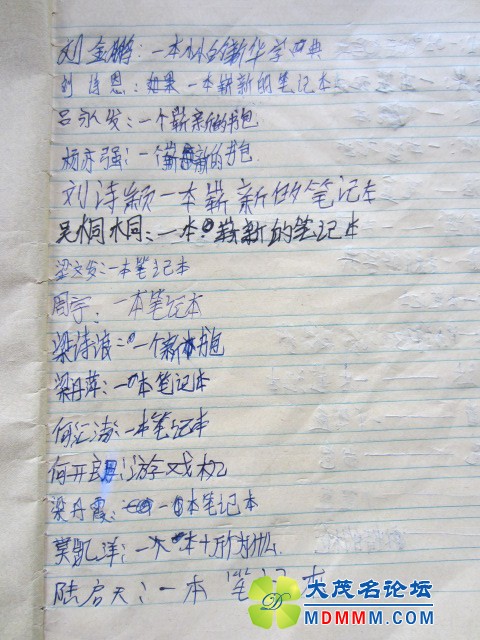 刘金鹏：一本的新华字典
刘诗恩：如果一本崭新的笔记本
吕永发：一个崭新的书包
杨亦强：一个崭新的书包
刘诗颖一本崭新的笔记本
吴桐桐：一本崭新的笔记本
梁文发：一本笔记本
周宇：一本笔记本
梁诗波：一个新书包
梁丹萍：一本笔记本
何汇涛：一本笔记本
何开明：游戏机
梁丹霞：一本笔记本
莫凯洋：一个
陆启天：一本笔记本
大茂名论坛
MDMMM.COM